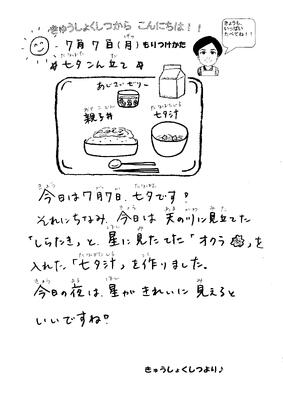 きゅうしょくしつから こんにちは！！
きょうも、
いっぱい
たべてね！！
7月7日(月) もりつけかた
七夕こん立て
あじさいゼリー
親子丼
七夕汁
今日は7月7日、七夕です。
それにちなみ、今日は 天の川に見立てた
「しらたき」と、星に見たてた「オクラ」を
入れた「七夕汁」を作りました。
今日の夜は、星が きれいに 見えると
いいですね。
きゅうしょくしつより♪